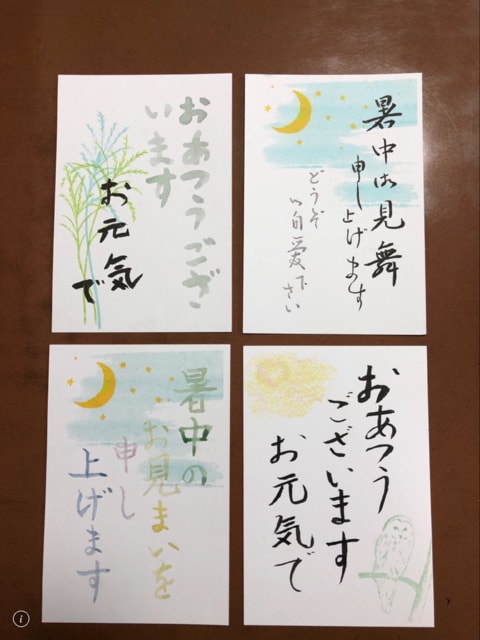 おあつうござ
います
お元気
で
暑中お見舞
申し上げます
どうぞ
ご自愛下さい
暑中の
お見まいを
申し
上げます
おあつう
ございます
お元気で